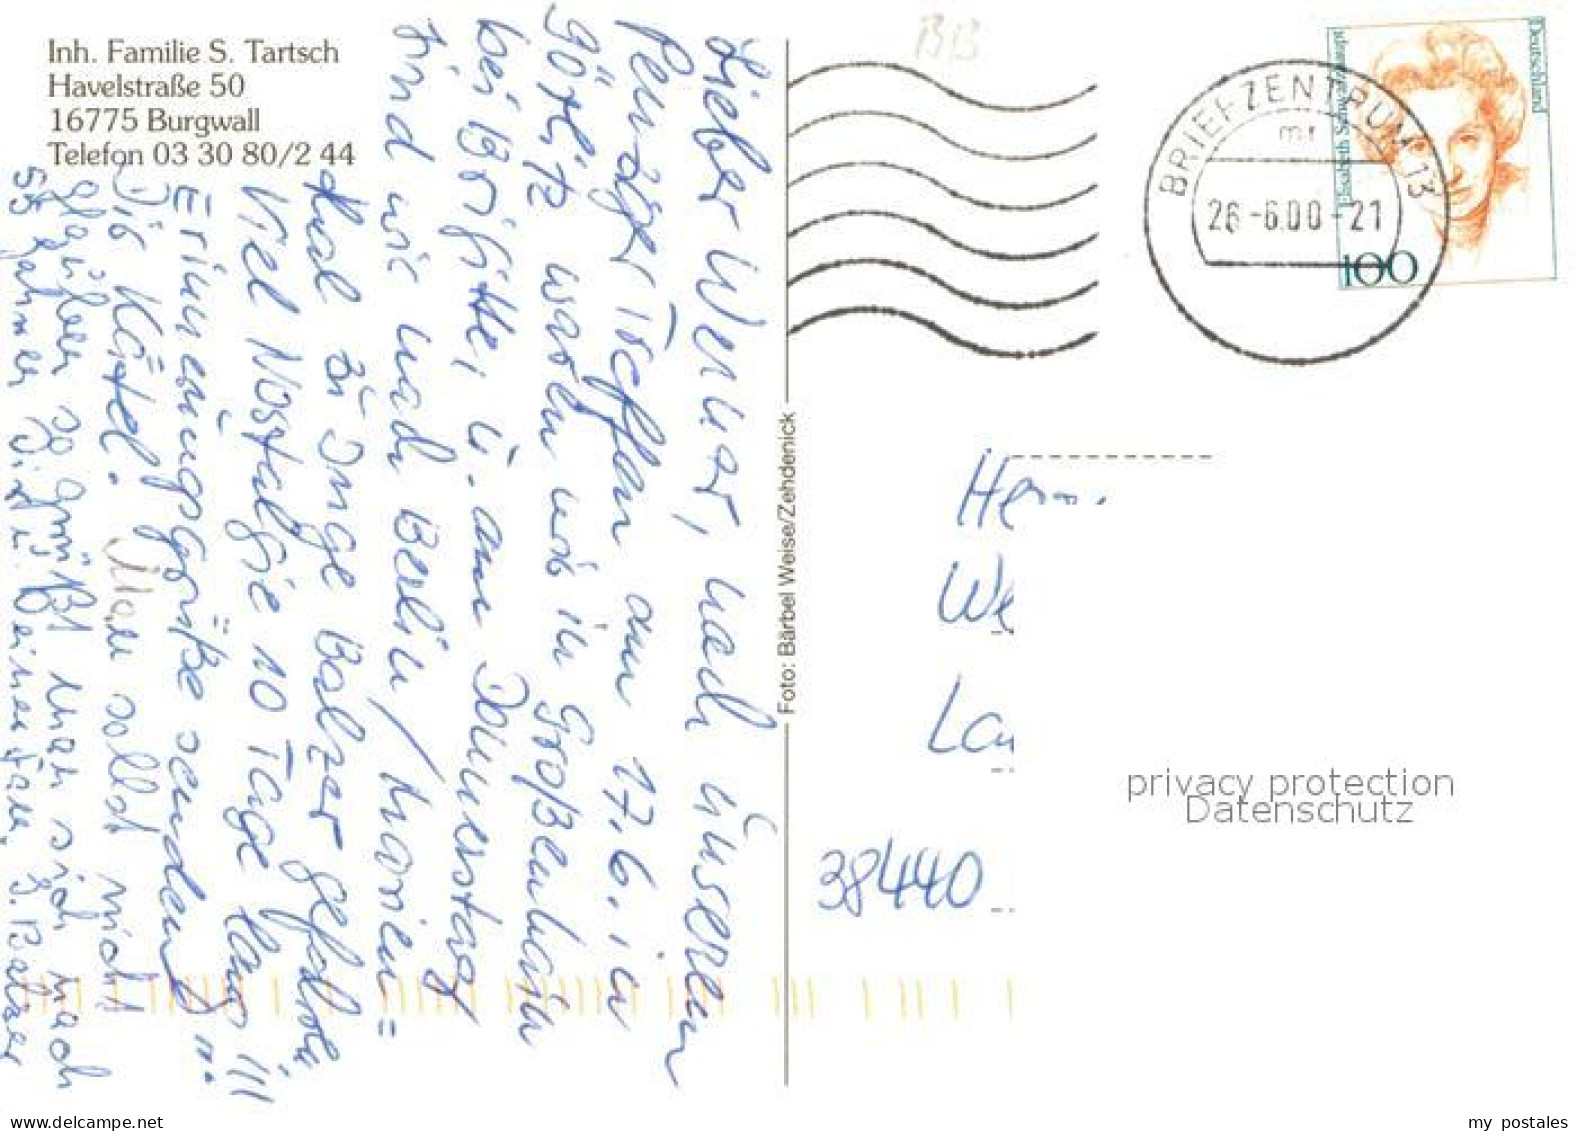 Inh. Familie S. Tartsch
Havelstraße 50
16775 Burgwall
Telefon 03 30 80/2 44
Lieber Werner, nach unseren
Penäler Treffen am 17.6. in
Görlitz waren wir in Großenhain
bei Brigitte, u. am Donnerstag
sind wir nach Berlin/Marien=
zu Inge Balzer gefahren
Viel Nostalgie 10 Tage lang!!!
Erinnerungsgrüße senden Dir
Die Mädel. Man sollt nicht
glauben so grüßt man sich nach
55 Jahren
Foto: Bärbel Weise/Zehdenick
BRIEFZENTRUM 13
mr
26-6.00-21
Deutschland
Elisabeth Schwarzhaupt
100
Herrn
We
La
38440
privacy protection
Datenschutz
my postales